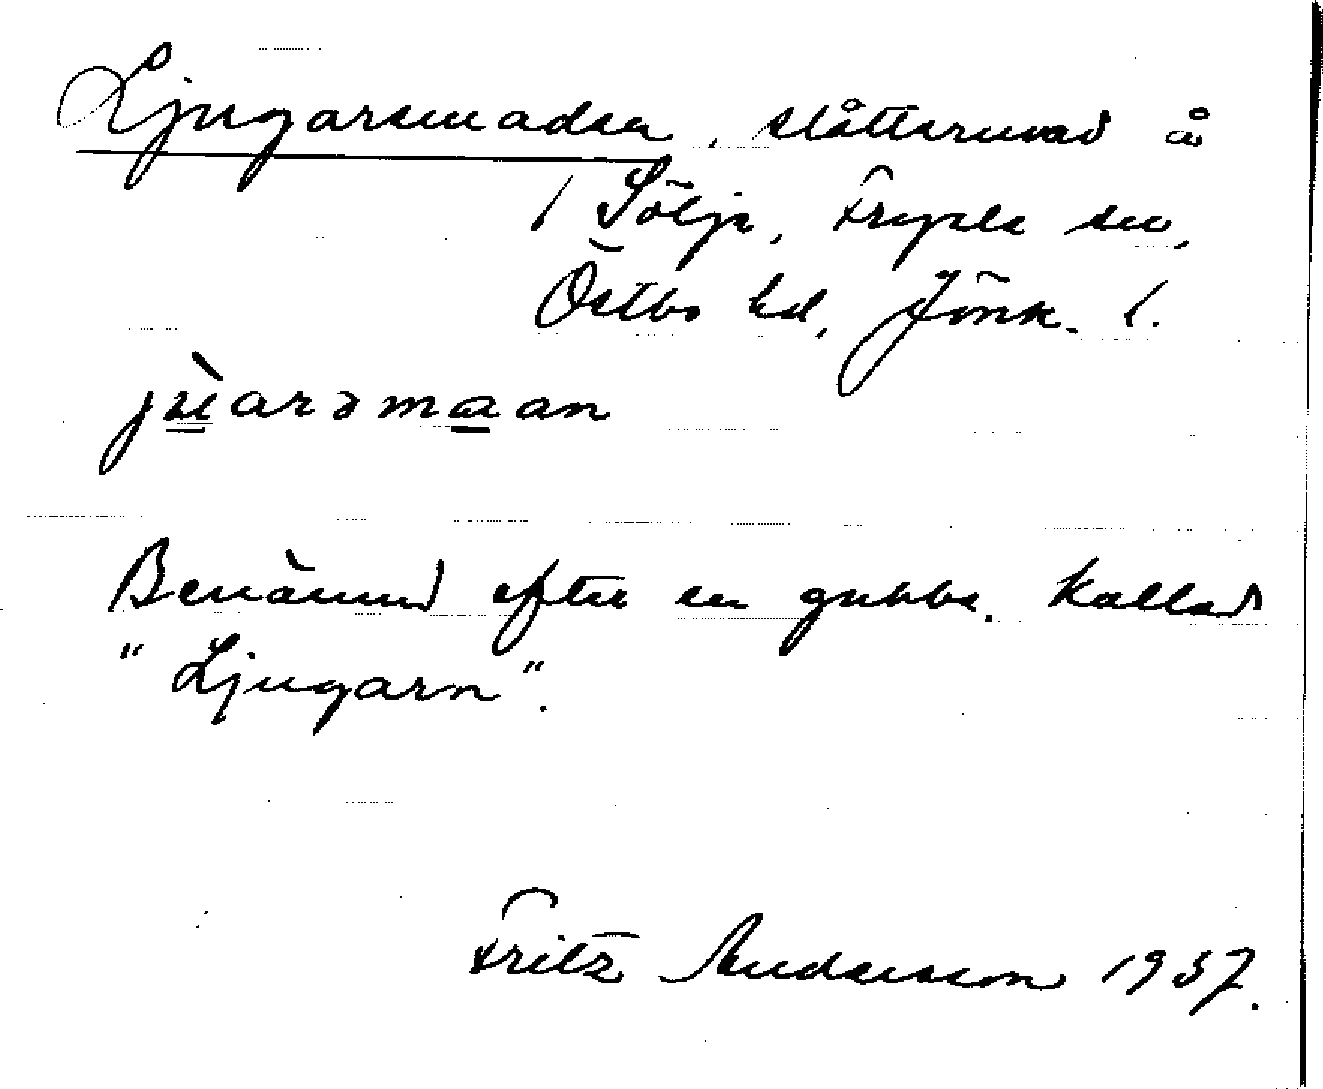 Ljugaremaden, slåttermad å
1 Sölje, Fryele sn,
Östbo hd, Jönk. l.
jùarəmaan
Benämnd efter en gubbe, kallad
"Ljugarn".
Fritz Andersson 1937.